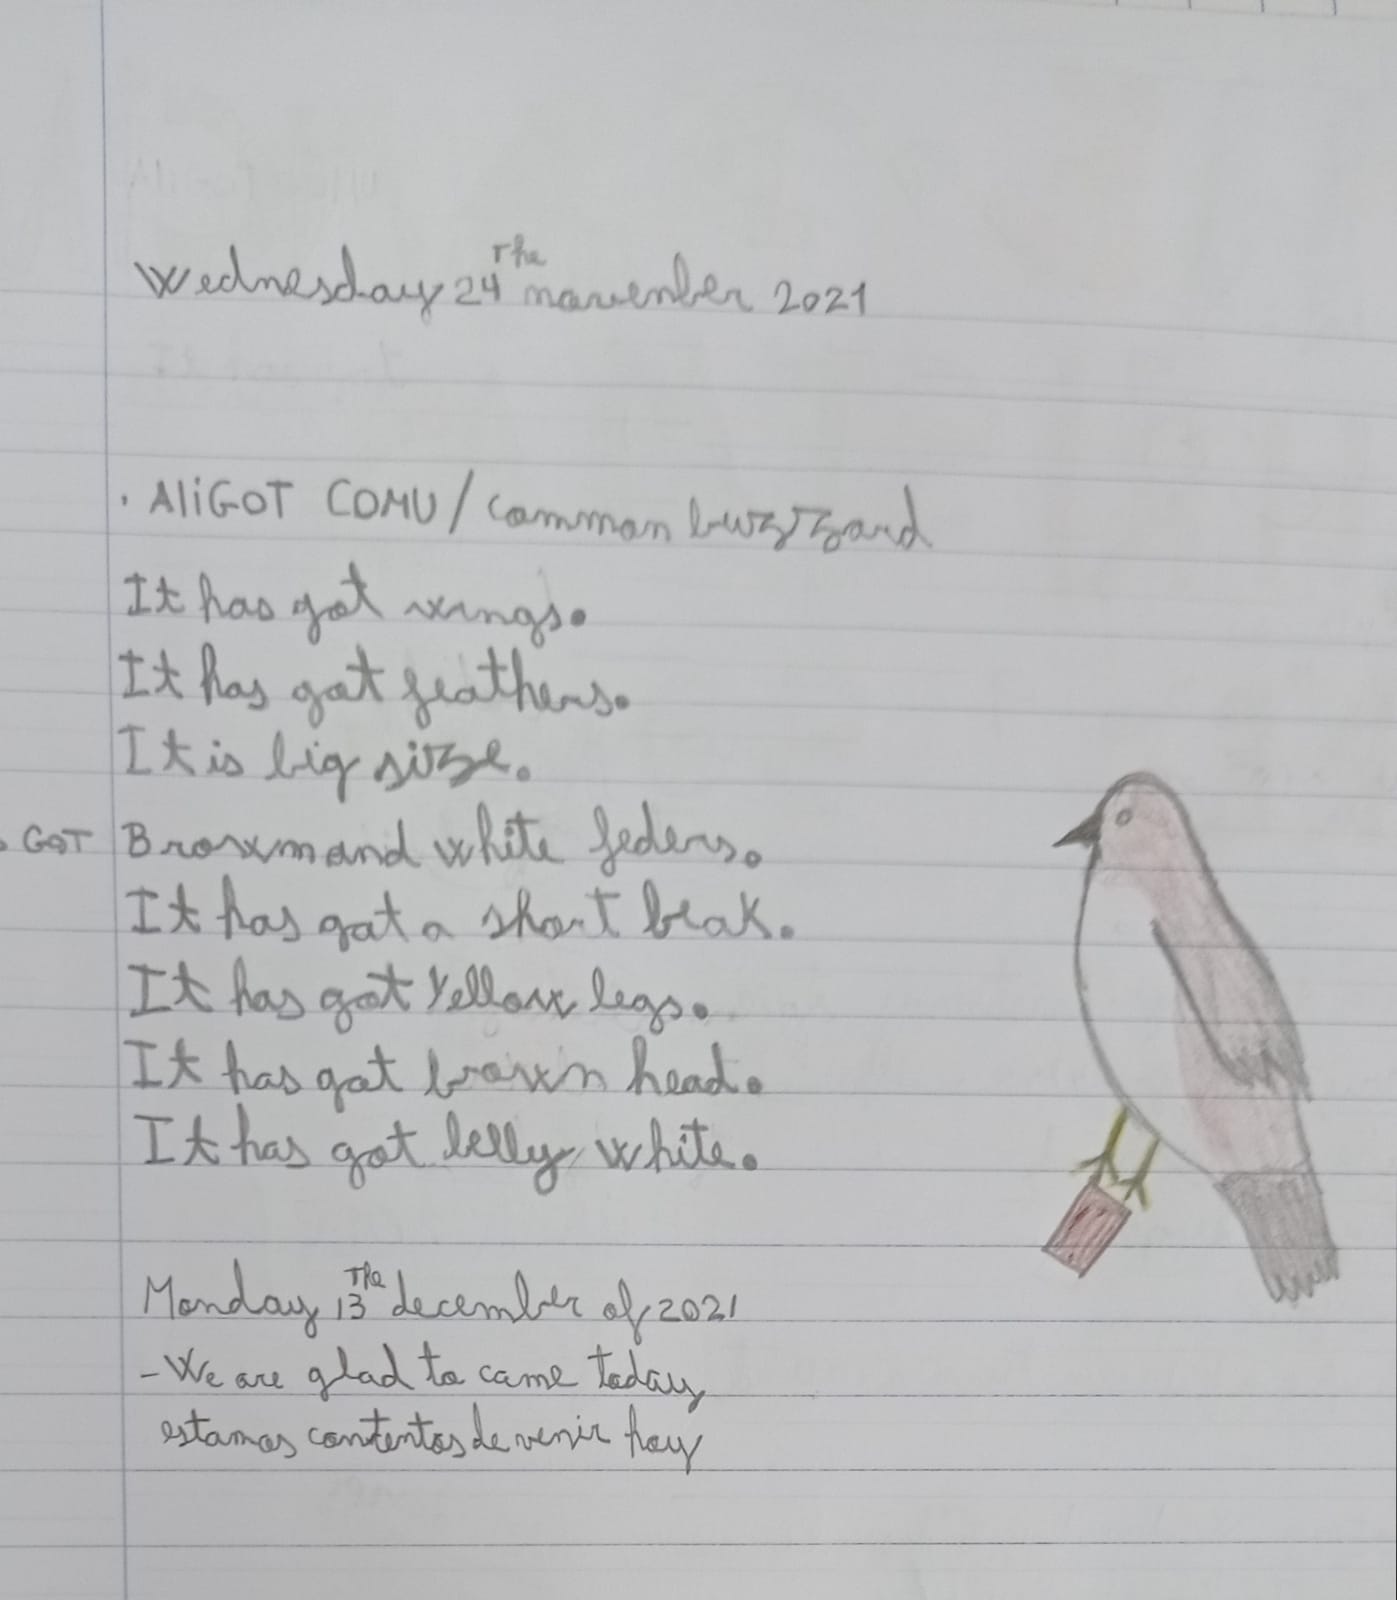 Wednesday 24 The november 2021
. AliGOT COMU/common buzzard
It has got wings.
It has got feathers.
It is big size.
. GOT Brown and white feders.
It has got a short beak.
It has got yellow legs.
It has got brown head.
It has got belly white.
Monday 13 The december of 2021
- We are glad to come today
estamos contentos de venir hoy